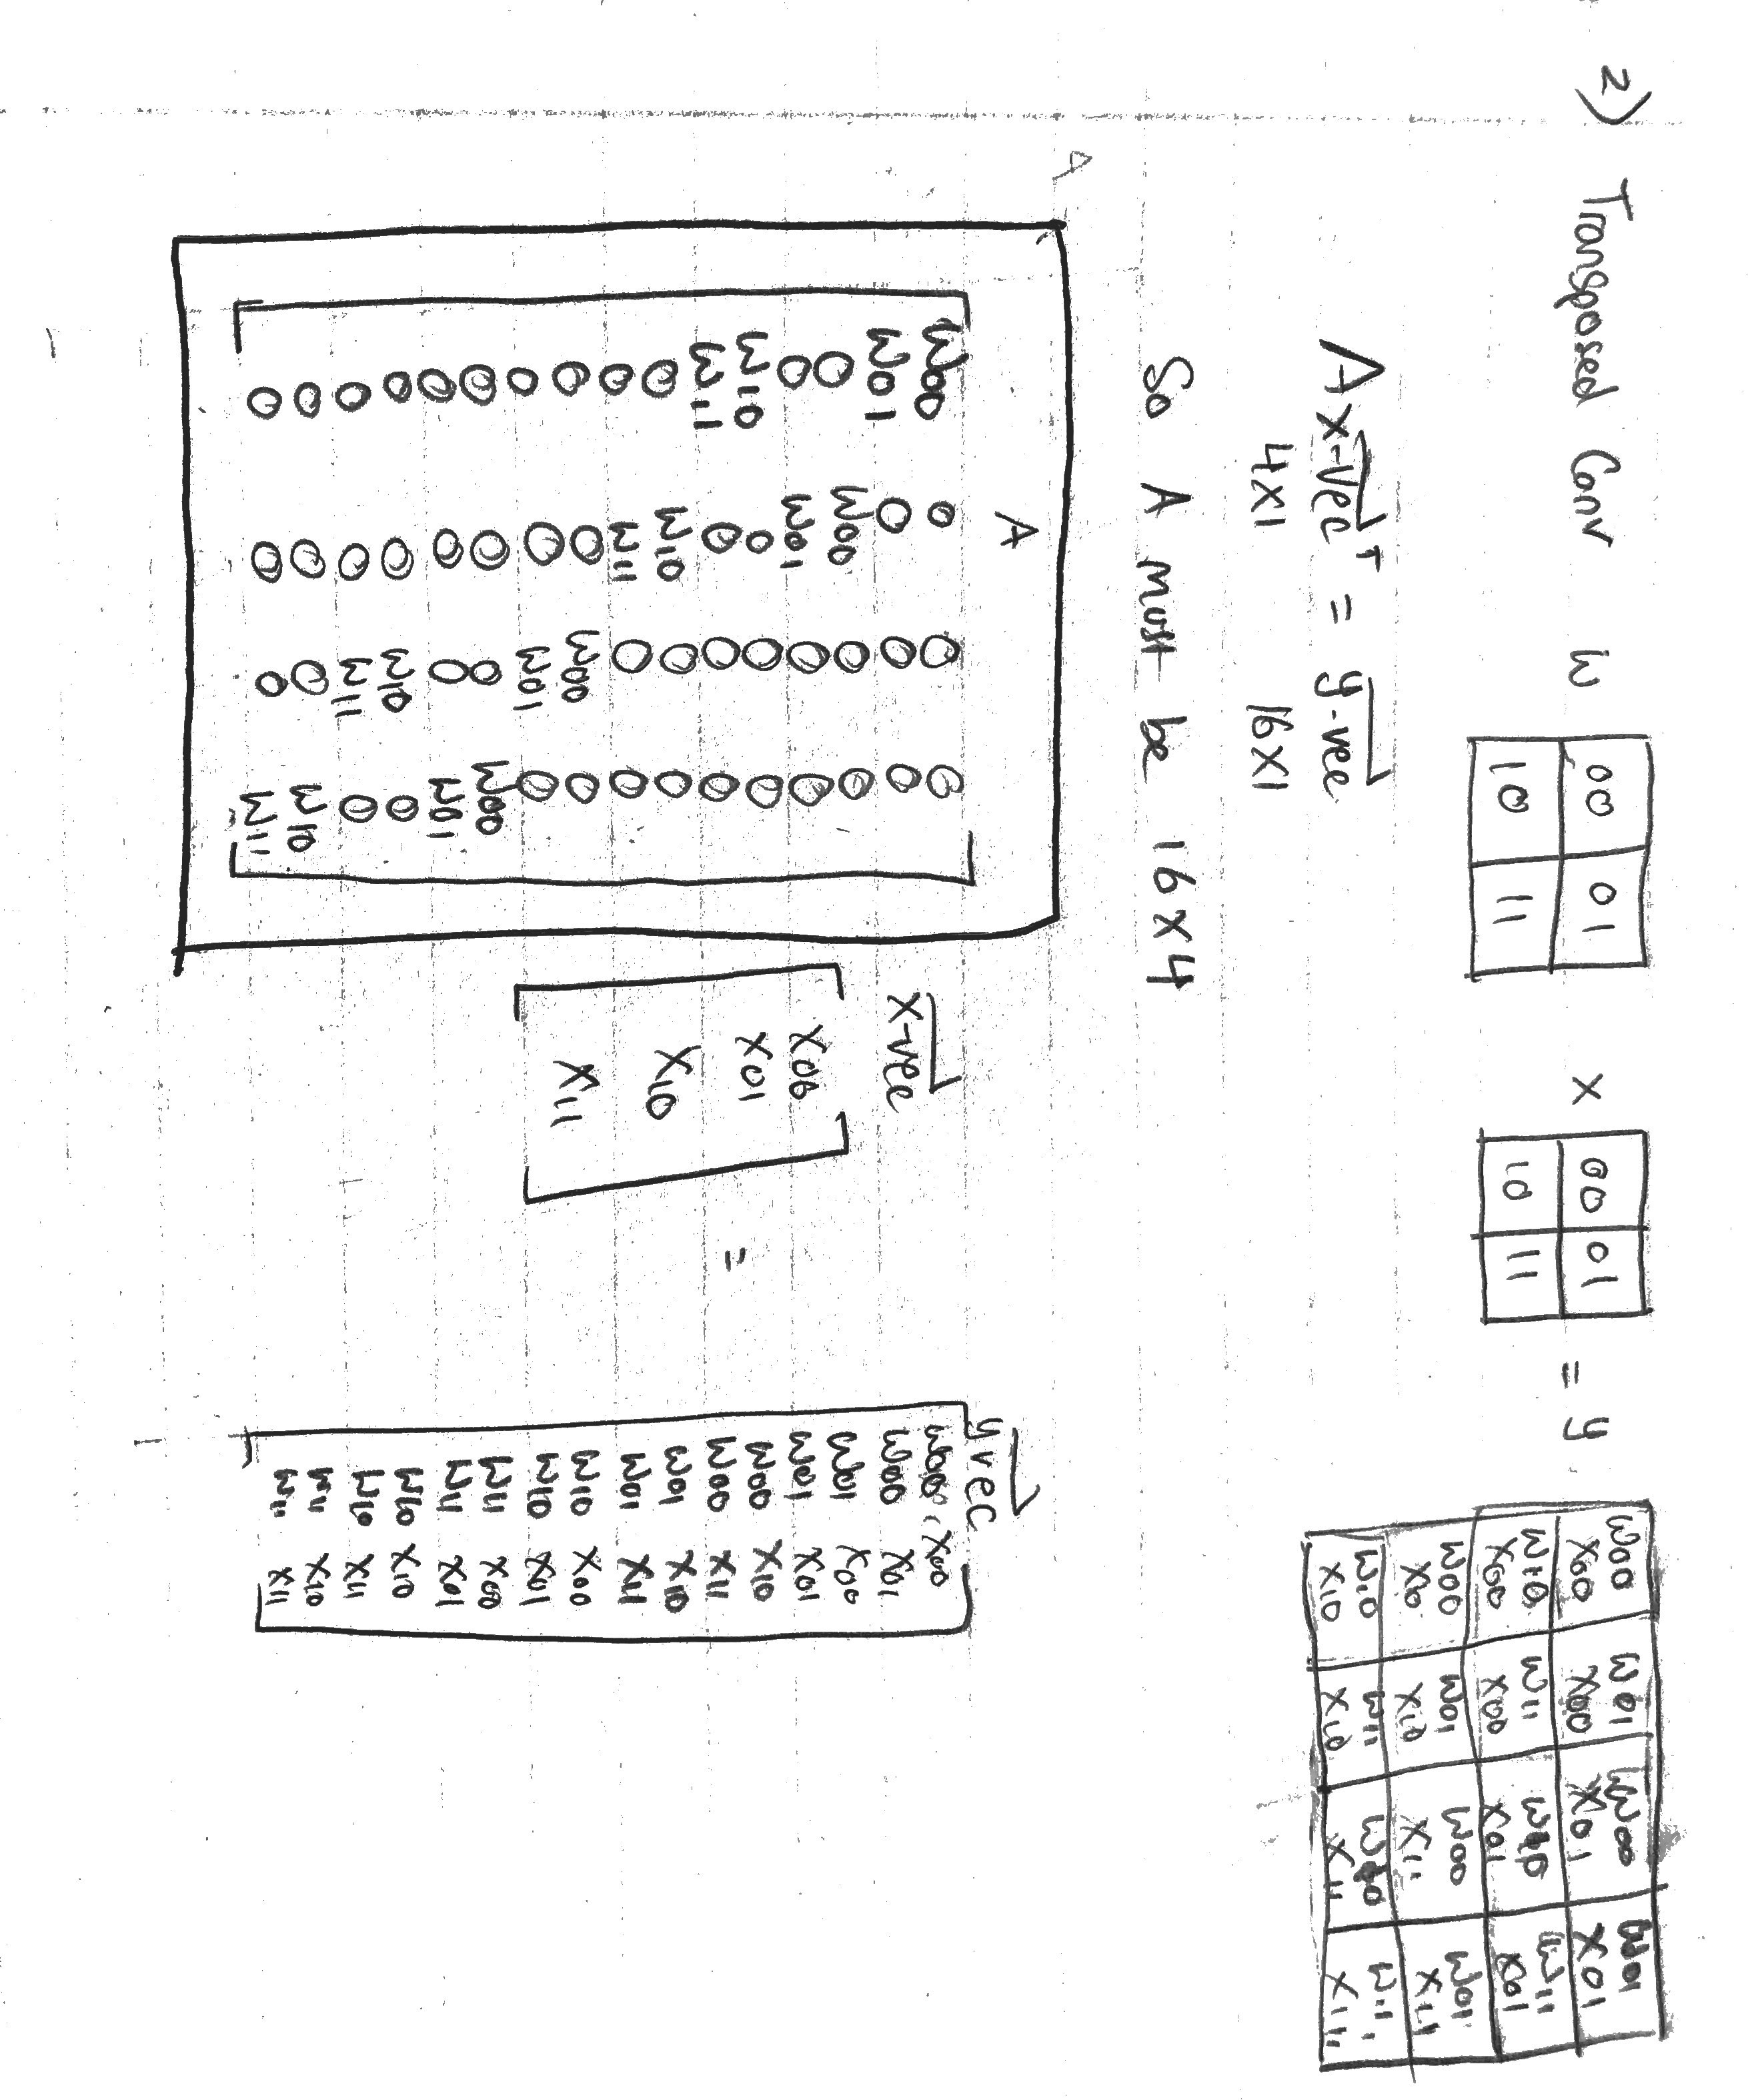 2) Transposed Conv w x = y
00 01
10 11
00 01
10 11
w00 w01 w00 w01
x00 x00 x01 x01
w10 w11 w10 w11
x00 x00 x01 x01
w00 w01 w00 w01
x10 x10 x11 x11
w10 w11 w10 w11
x10 x10 x11 x11
A x-vec^T = y-vec
4x1 16x1
So A must be 16x4
A
w00 0 0 0
w01 0 0 0
0 w00 0 0
0 w01 0 0
w10 0 0 0
w11 0 0 0
0 w10 0 0
0 w11 0 0
0 0 w00 0
0 0 w01 0
0 0 0 w00
0 0 0 w01
0 0 w10 0
0 0 w11 0
0 0 0 w10
0 0 0 w11
x-vec
x00
x01
x10
x11
=
y vec
w00 x00
w00 x01
w01 x00
w01 x01
w00 x10
w00 x11
w01 x10
w01 x11
w10 x00
w10 x01
w11 x00
w11 x01
w10 x10
w10 x11
w11 x10
w11 x11